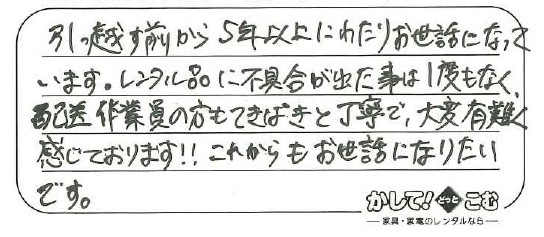 引っ越す前から5年以上にわたりお世話になって
います。レンタル品に不具合が出た事は1度もなく、
配送作業員の方もてきぱきと丁寧で、大変有難く
感じております!! これからもお世話になりたい
です。
かして!どっとこむ
家具・家電のレンタルなら